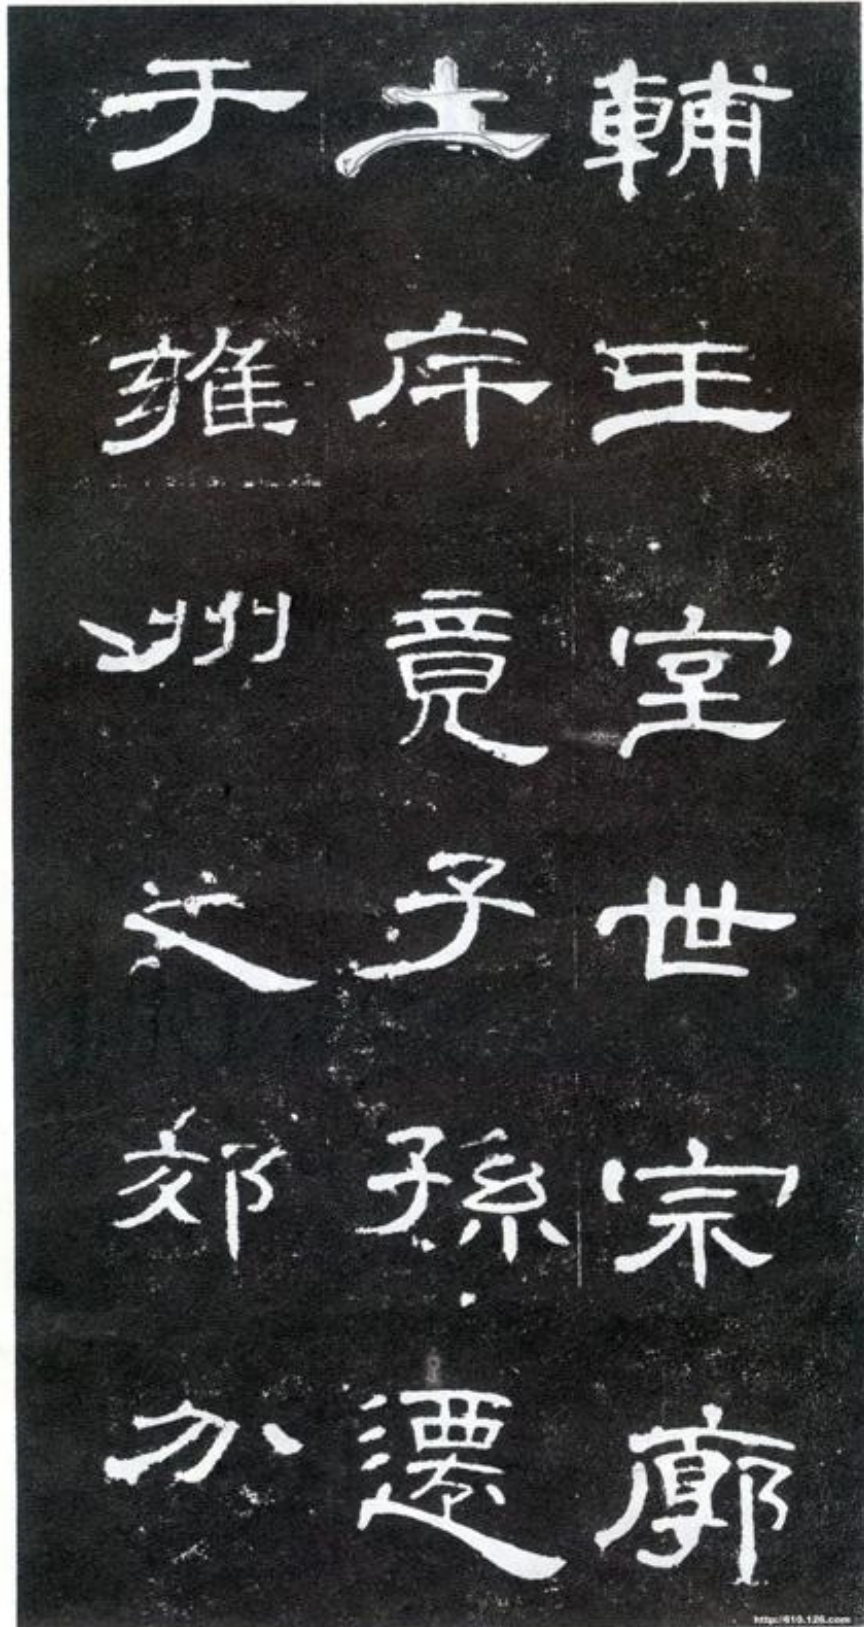 輔王室世宗廓
土序竟子孫遷
于雍州之郊分
http://610.126.com